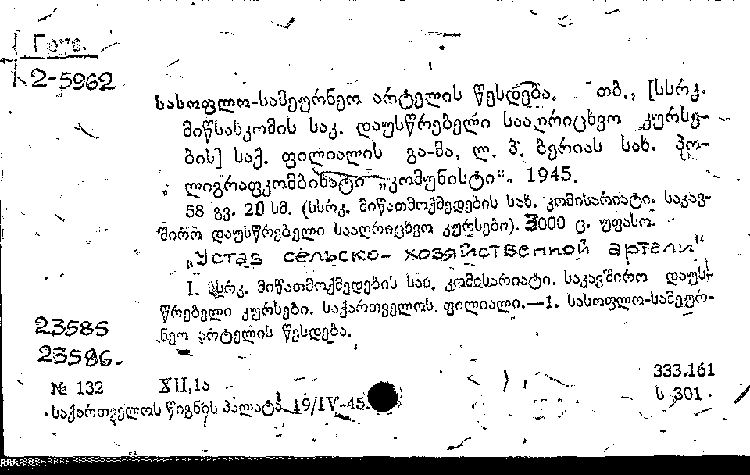 Груз.
2-5962
სასოფლო-სამეურნეო არტელის წესდება. თბ., [სსრკ.
მიწსახკომის საკ. დაუსწრებელი სააღრიცხვო კურსე-
ბის] საქ. ფილიალის გა-მა, ლ. პ. ბერიას სახ. პო-
ლიგრაფკომბინატი „კომუნისტი“. 1945.
58 გვ. 20 სმ. (სსრკ. მიწათმოქმედების სახ. კომისარიატი. საკავ-
შირო დაუსწრებელი სააღრიცხვო კურსები). 3000 ც. უფასო.
„Устав сельско-хозяйственной артели“
I. სსრკ. მიწათმოქმედების სახ. კომისარიატი. საკავშირო დაუს-
წრებელი კურსები. საქართველოს ფილიალი.—1. სასოფლო-სამეურ-
ნეო არტელის წესდება.
23585
23586.
№ 132 XII,1ა 333.161
საქართველოს წიგნის პალატა 19/IV-45. ს 301.